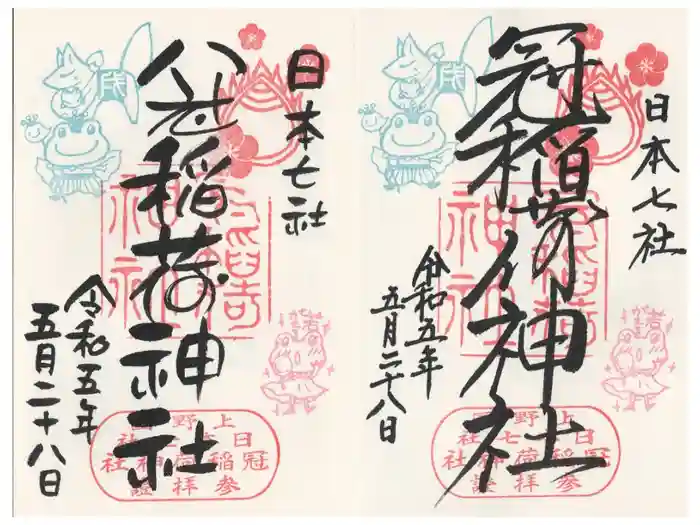 日本七社
冠稲荷神社
令和五年
五月二十八日
成
冠稲荷
神社
上野國
日本七社
冠稲荷神社
参拝證
日本七社
冠稲荷神社
令和五年
五月二十八日
上野國
日本七社
冠稲荷神社
参拝證